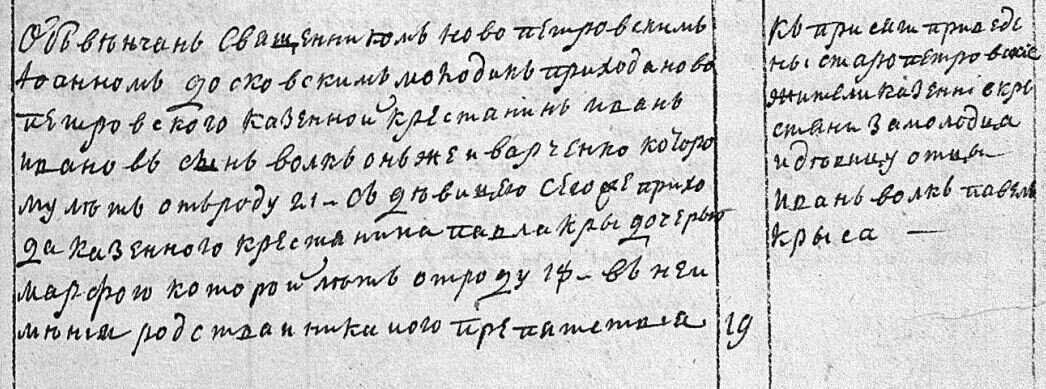 Объвѣнчанъ Священникомъ новопетровскимъ
Іоанномъ Досковскимъ молодикъ прихода ново
петровского казенной крестанинъ иванъ
ивановъ сынъ волкъ онъже и варченко которо
му лѣтъ отъроду 21 – съ дѣвицею сегоже прихо
да казенного крестанина павла крысы дочерью
марфою которой лѣтъ отроду 18 – въ неи
мѣніи родства и никакого препятствія 19
къ присяги приведе
ны старопетровские
жители казенніе кре
стяни за молодца
и дѣвицу отцы
иванъ волкъ павелъ
крыса —